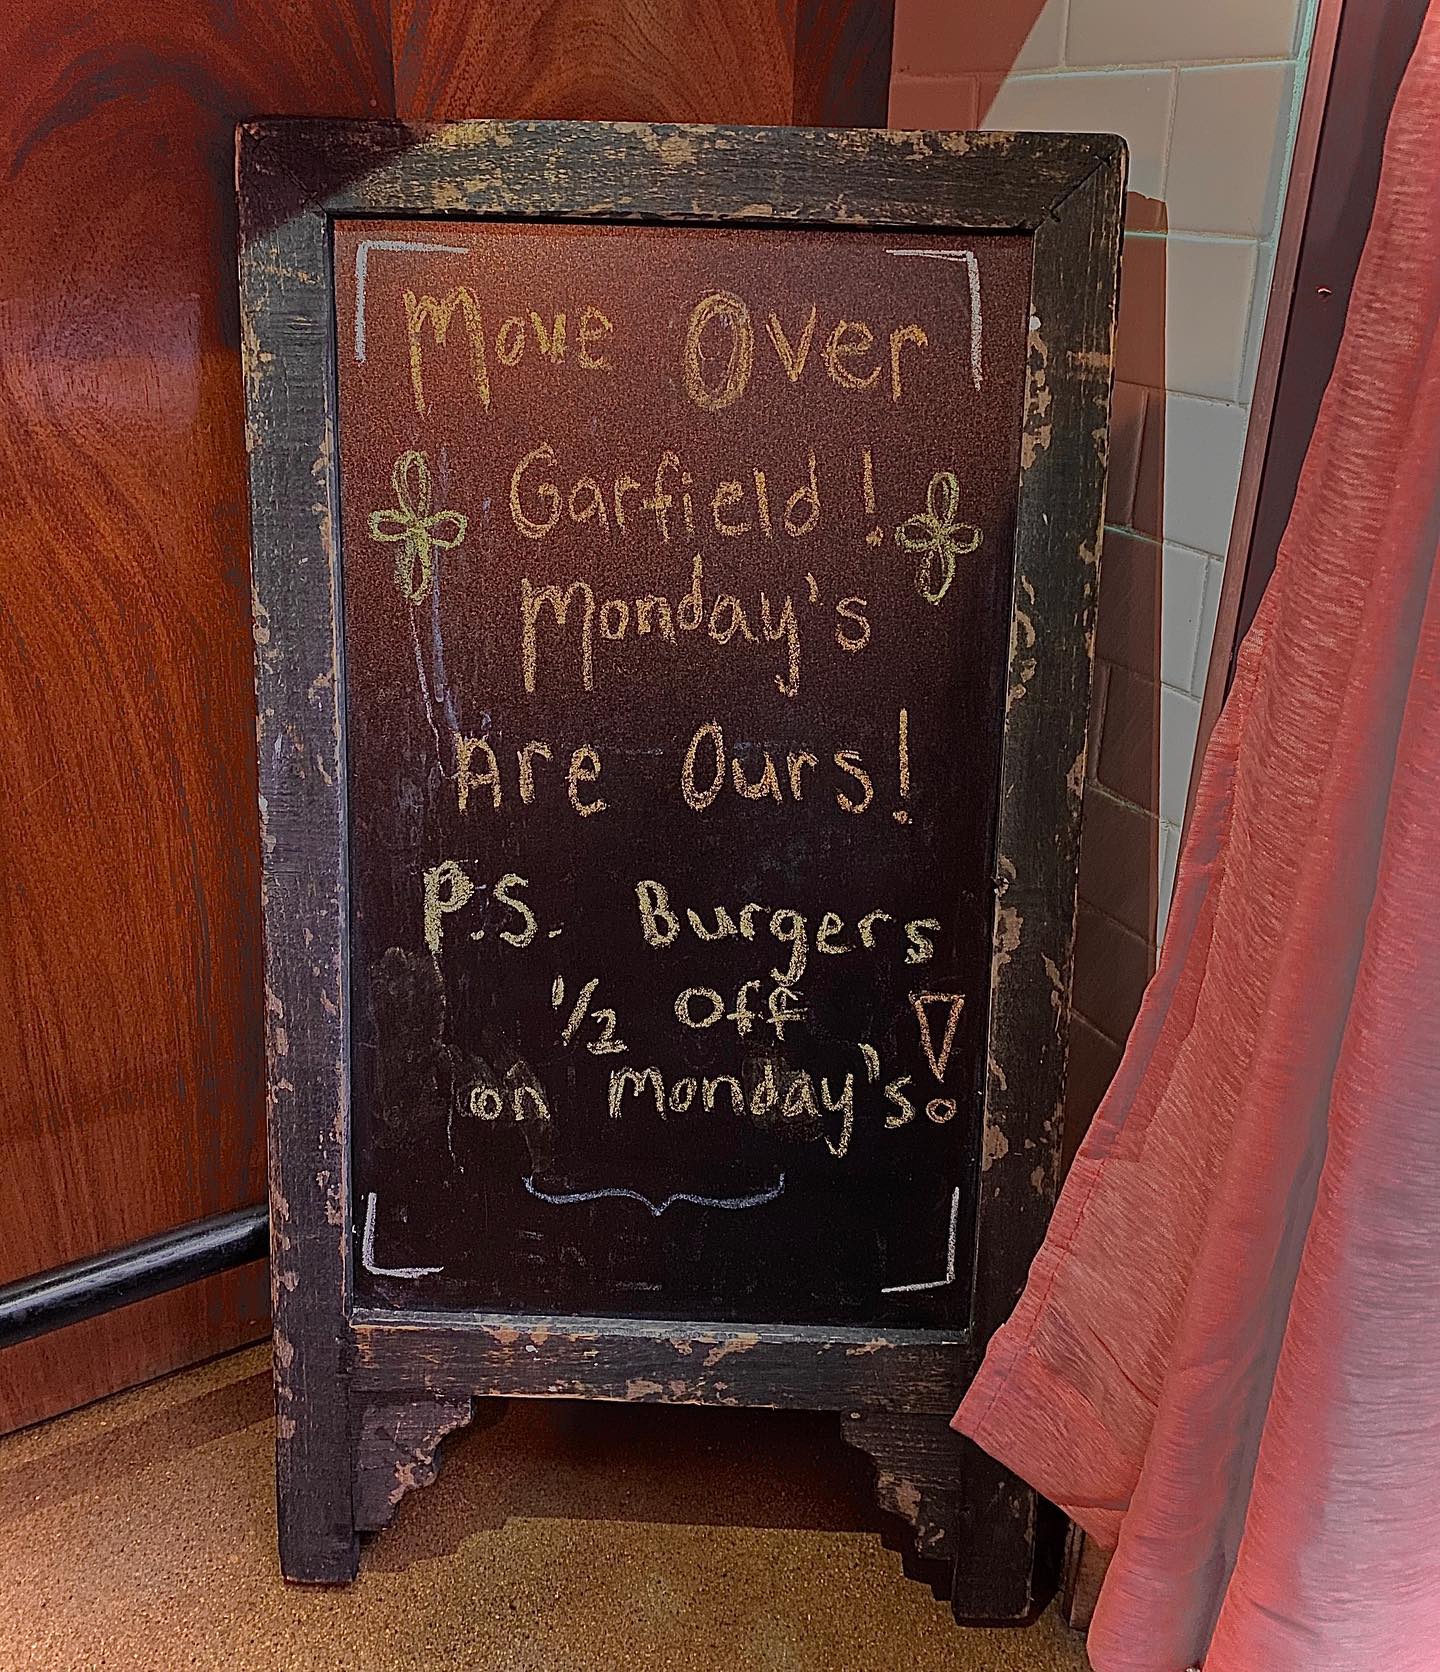 Move Over
Garfield!
Monday's
Are Ours!
P.S. Burgers
1/2 off
on Monday's!